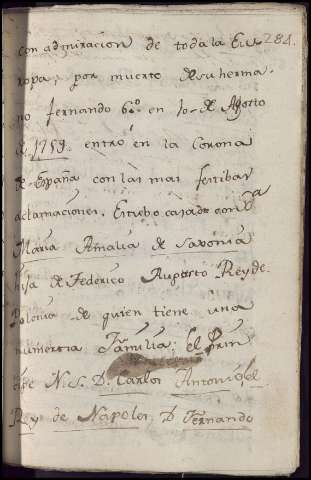 284.
con admiracion de toda la Eu
ropa, por muerte de su herma.
no fernando 6º. en 10- de Agosto
de 1759 entró en la Corona
de España con las mas festibas
aclamaciones. Estubo casado con Dª
Maria Amalia de Saxonia
hija de Federico Augusto Rey de
Polonia de quien tiene una
numerosa Familia; el Prin
cipe N. S. D. Carlos Antonio, el
Rey de Napoles D. Fernando